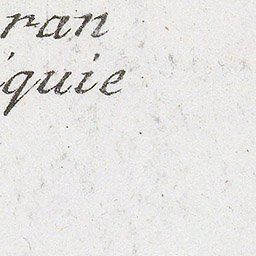 ran
quie